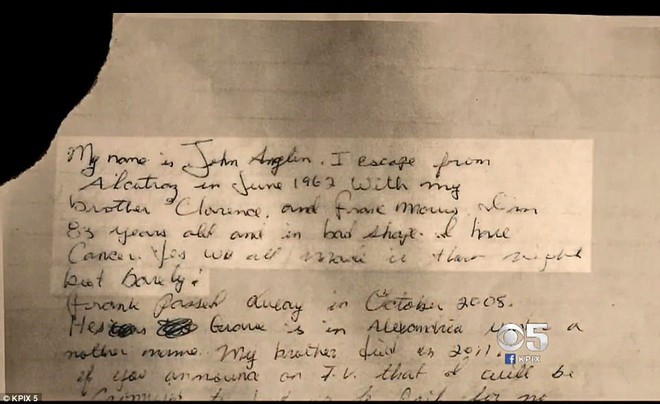 My name is John Anglin. I escape from
Alcatraz in June 1962 With my
brother Clarence, and Frank Morris. I'm
83 years old and in bad shape. I have
Cancer. Yes we all made it that night
but barely!
Frank Passed away in October 2005.
Hes Grave is in Alexandria under a
nother name. My brother died in 2011.
if you announce on T.V. that I will be
to jail for no
5
f KPIX
© KPIX 5